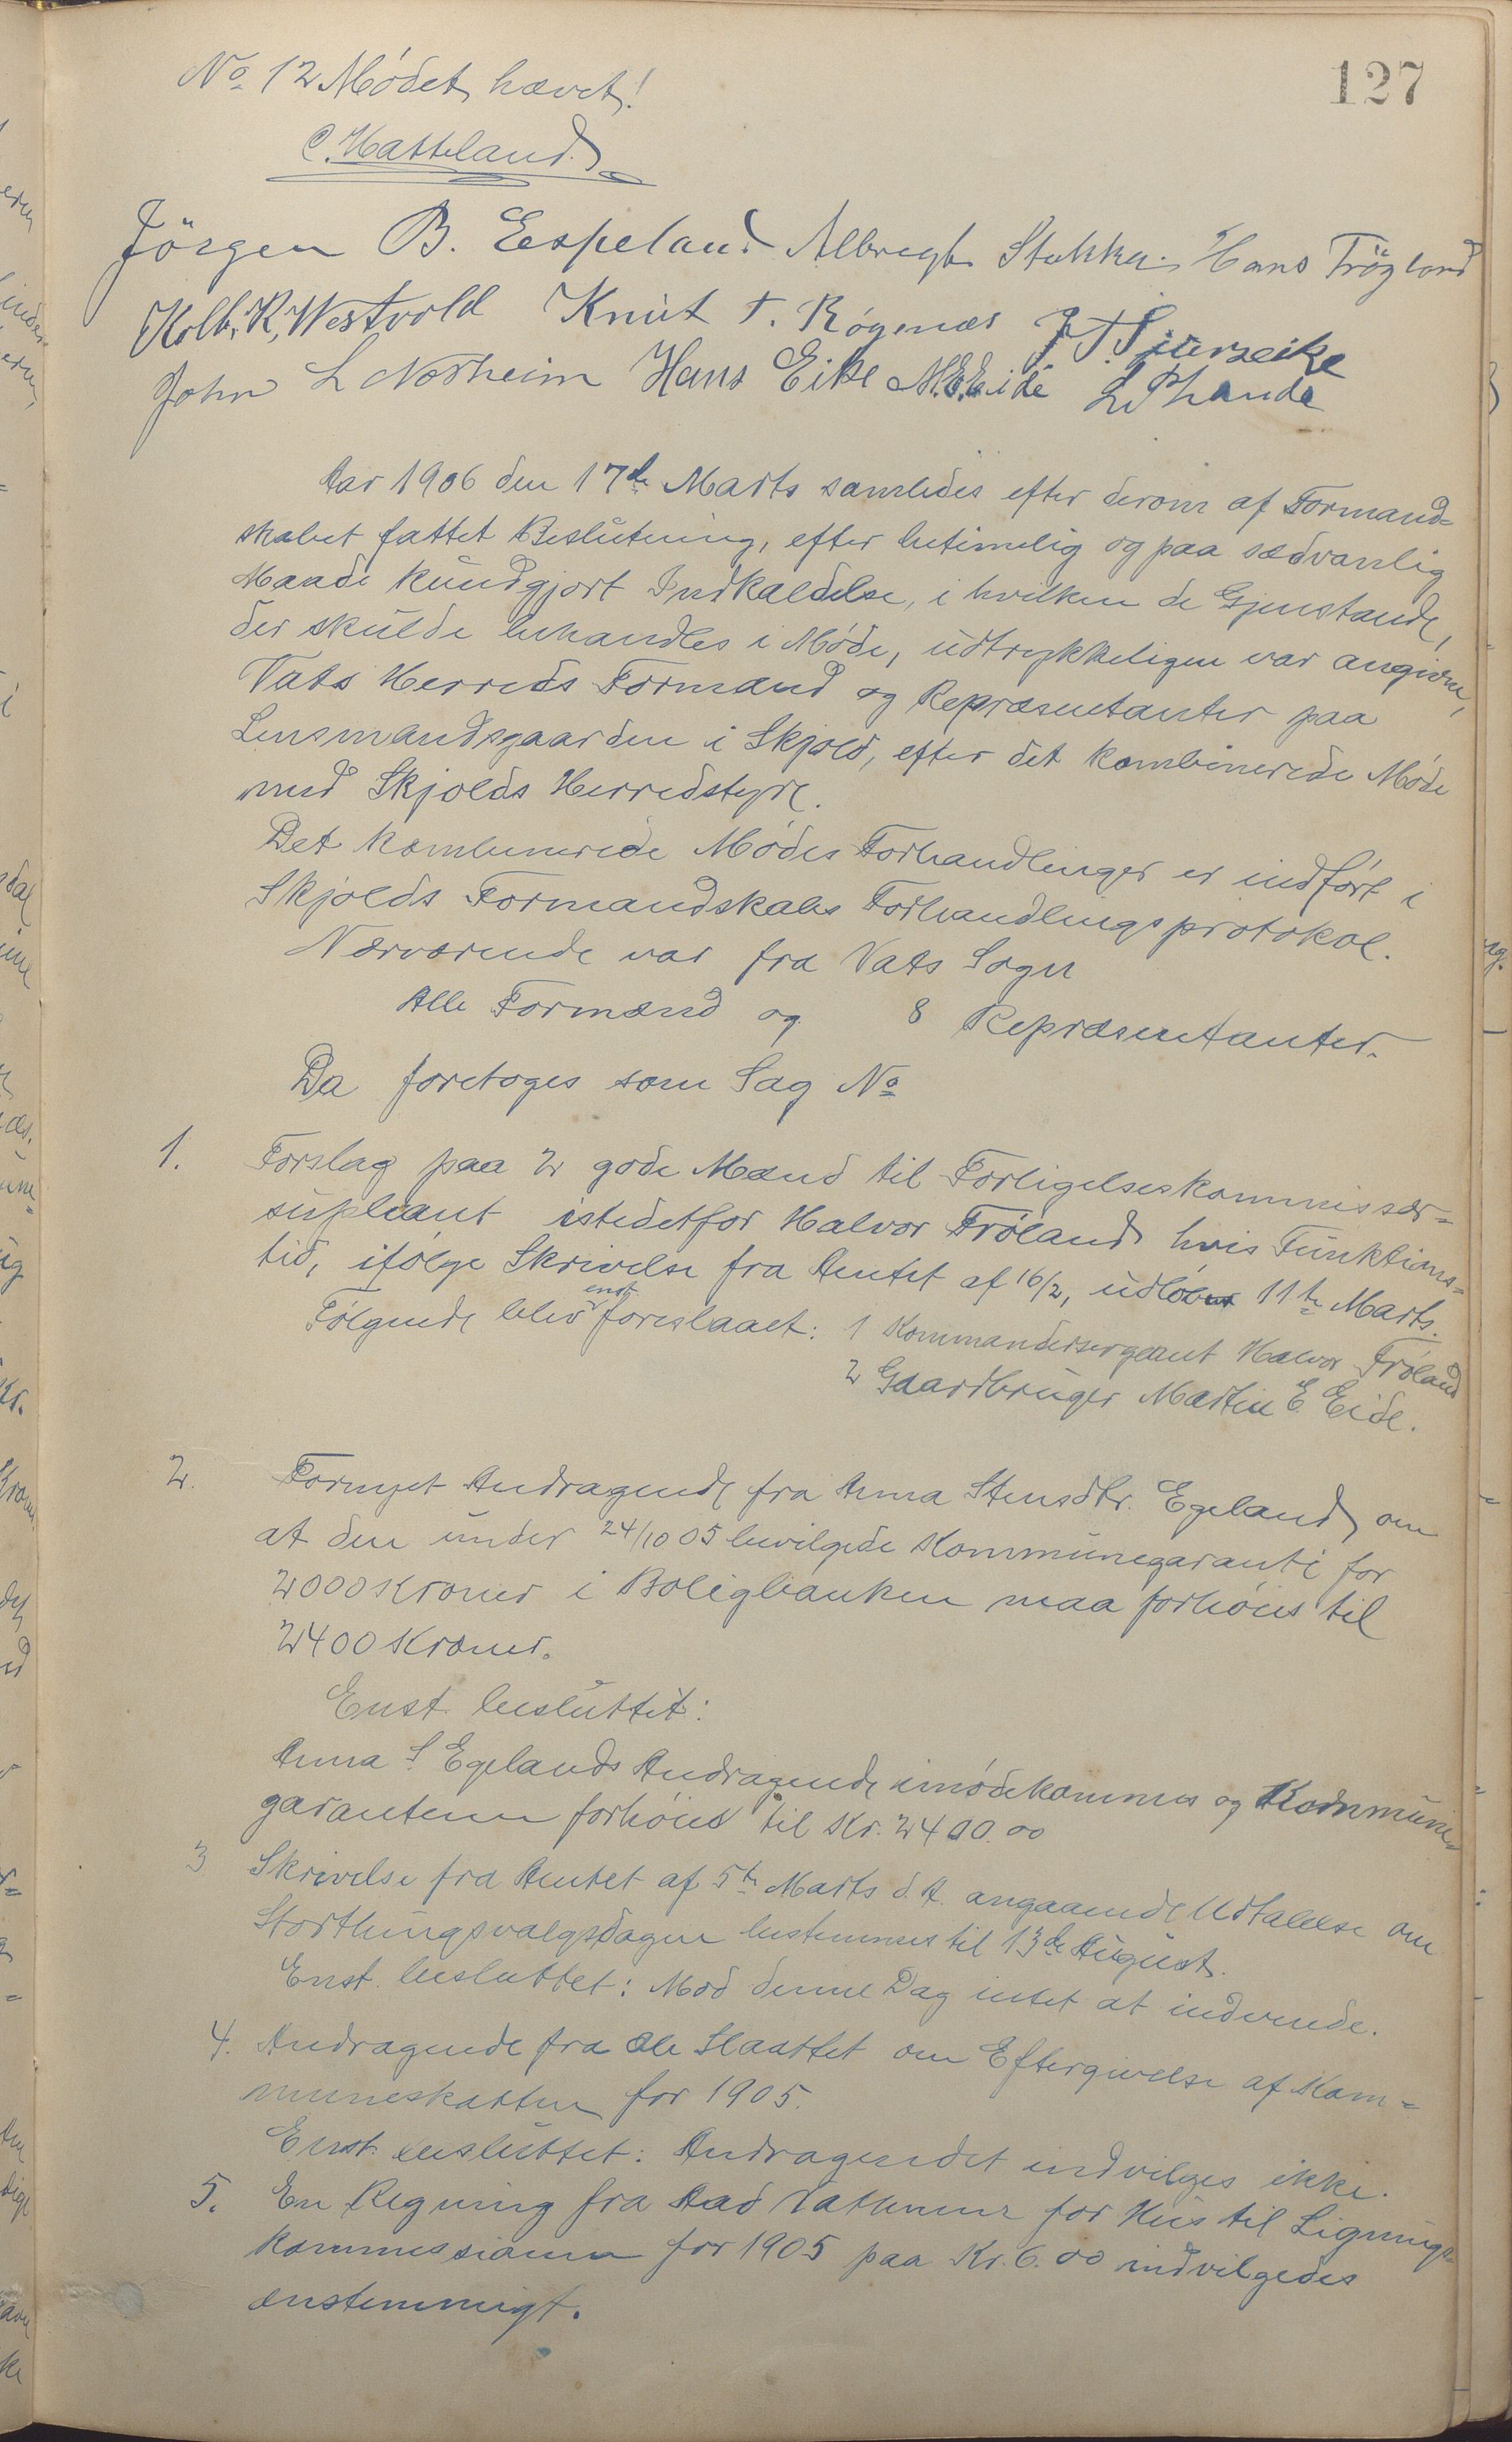 127
No 12 Mödet hævet!
C. Hatteland
Jörgen B. Eespeland Albregt Stakke. Hans Trögland
Kolb. R. Westvold Knut T. Rögenæs
John L Norheim Hans Eike M.E.Eide
Aar 1906 den 17de Marts samledes efter derom af Formand-
skabet fattet Beslutning, efter betimelig og paa sædvanlig
Maade kundgjort Indkaldelse, i hvilken de Gjenstande,
der skulde behandles i Möde, udtrykkeligen var angivne,
Vats Herreds Formænd og Repræsentanter paa
Lensmandsgaarden i Skjold, efter det kombinerede Möde
med Skjolds Herredstyre.
Det kombinerede Mödes Forhandlinger er indfört i
Skjolds Formandskabs Forhandlingsprotokol.
Nærværende var fra Vats Sogn
Alle Formænd og 8 Repræsentanter.
Da foretoges som Sag No
1. Forslag paa 2 gode Mænd til Forligelseskommissær-
supleant istedetfor Halvor Fröland hvis Funktions-
tid, ifölge Skrivelse fra Amtet af 16/2, udlöber 11te Marts.
Fölgende blev enst foreslaaet: 1 Kommandersergeant Halvor Fröland
2 Gaardbruger Martin E. Eide.
2. Fornyet Andragende fra Anna Stensdtr. Egeland om
at den under 24/10 05 bevilgede Kommunegaranti for
2000 Kroner i Boligbanken maa forhöies til
2400 Kroner.
Enst. besluttet:
Anna S Egelands Andragende imödekommes og Kommune-
garantien forhöies til Kr. 2400.00
3 Skrivelse fra Amtet af 5te Marts d. A. angaaende Udtalelse om
Storthingsvalgsdagen bestemmes til 13de August.
Enst. besluttet: Mod denne Dag intet at indvende.
4. Andragende fra Ole Slaattet om Eftergivelse af Kom-
muneskatten for 1905.
Enst. besluttet: Andragendet indvilges ikke.
5. En Regning fra Aad Vatnene for Hus til Lignings-
kommissionen for 1905 paa Kr. 6.00 indvilgedes
enstemmigt.